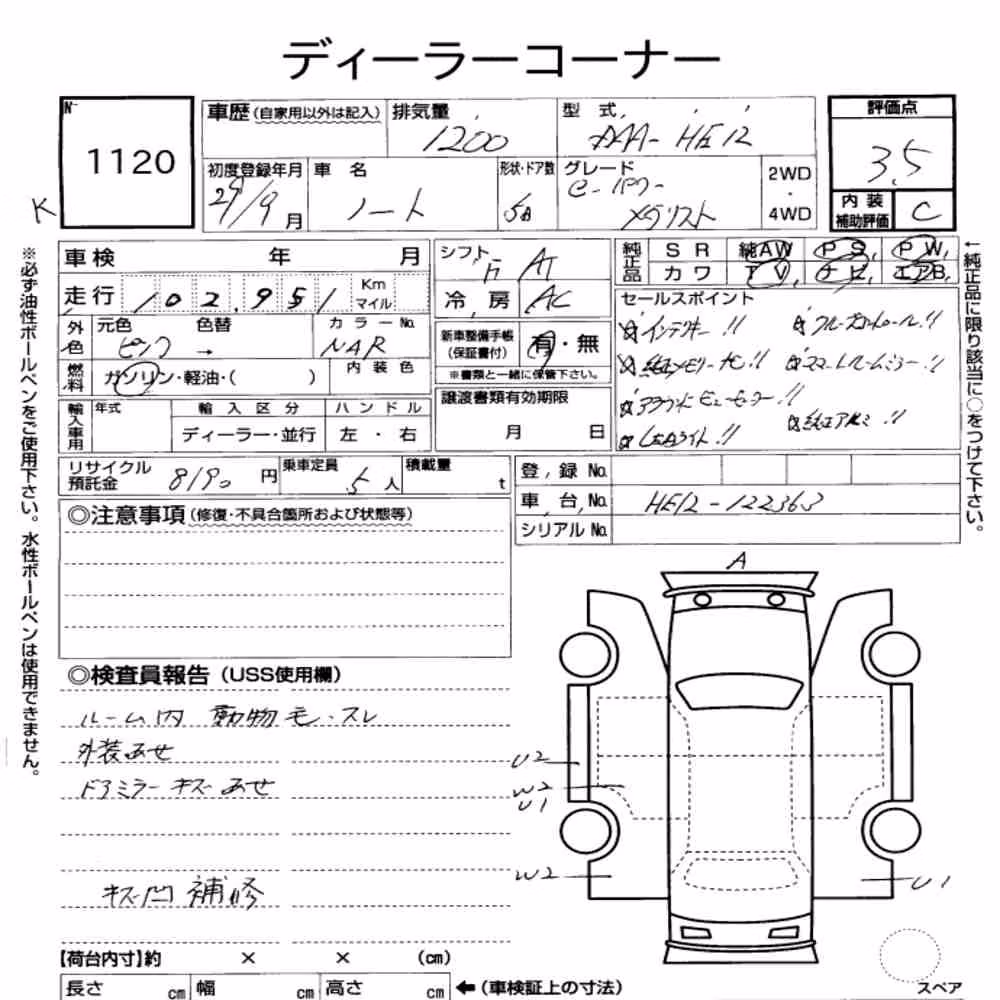 ディーラーコーナー
No.
1120
K
車歴(自家用以外は記入)
排気量
1200
型 式
DAA-HE12
評価点
3.5
内装
補助評価
C
初度登録年月
29/9月
車 名
ノート
形状・ドア数
5D
グレード
e-パワー
メダリスト
2WD
・
4WD
※必ず油性ボールペンをご使用下さい。水性ボールペンは使用できません。
車検 年 月
走行 102,951 Km マイル
外色
元色 ピンク
色替 →
カラーNo.
NAR
燃料
ガソリン・軽油・( )
内装色
輸入車用
年式
輸入区分
ディーラー・並行
ハンドル
左・右
シフト F AT
冷房 AC
新車整備手帳
(保証書付)
有・無
※書類と一緒に保管下さい。
譲渡書類有効期限
月 日
純正品
SR 純AW PS, PW,
カワ TV, ナビ, エアB,
セールスポイント
☆インテリキー!!
☆純正メモリーナビ!!
☆アラウンドビューモニター!!
☆LEDライト!!
☆クルーズコントロール!!
☆スマートルームミラー!!
☆純正アルミ!!
↑純正品に限り該当に○をつけて下さい。
リサイクル
預託金
8190円
乗車定員
5人
積載量
t
登録No.
車台No. HE12-122363
シリアルNo.
◎注意事項(修復・不具合箇所および状態等)
◎検査員報告(USS使用欄)
ルーム内 動物毛・スレ
外装あせ
ドアミラー キズ あせ
キズ凹 補修
【荷台内寸】約 × × (cm)
長さ cm 幅 cm 高さ cm
←(車検証上の寸法)
A
U2
W2
U1
W2
U1
スペア